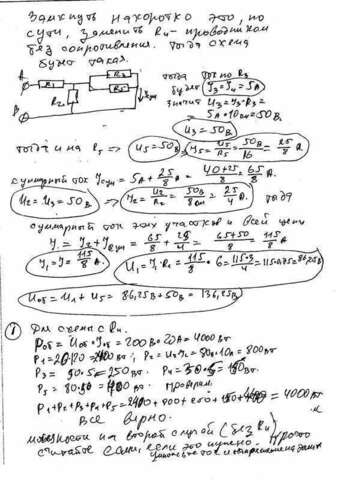 Замкнуть накоротко это, по
сути, заменить R4 - проводником
без сопротивления. Тогда схема
будет такая.
A R1 R3
R2 R5 Iсум
B
тогда ток по R3
будет I3=I4=5A
значит U3=I3·R3=
=5A·10Ом=50В
U3=50В
тогда и на R5 => U5=50В I5=U5/R5=50В/16=25/8 A.
суммарный ток Iсум=5A+25/8A=(40+25)/8=65/8 A.
U2=U3=50В => I2=U2/R2=50В/8Ом=25/4 A. тогда
суммарный ток этих участков и всей цепи
I=I2+Iсум=65/8+25/4=(65+50)/8=115/8
I1=I=115/8 A. U1=I1·R1=115/8·6=115·3/4=115·0.75=86,25В
Uоб=U1+U5=86,25В+50В=136,25В
① Для схемы с R4.
Pоб=Uоб·Iоб=200В·20A=4000Вт
P1=20·120=2400Вт; P2=U2·I2=80В·10A=800Вт
P3=50·5=250Вт. P4=30·5=150Вт.
P5=80·5=400Вт. проверим.
P1+P2+P3+P4+P5=2400+800+250+150+400=4000Вт
Все верно.
мощности на второй случай (без R4)
считаете сами, если это нужно. Просто
умножьте ток и напряжение на